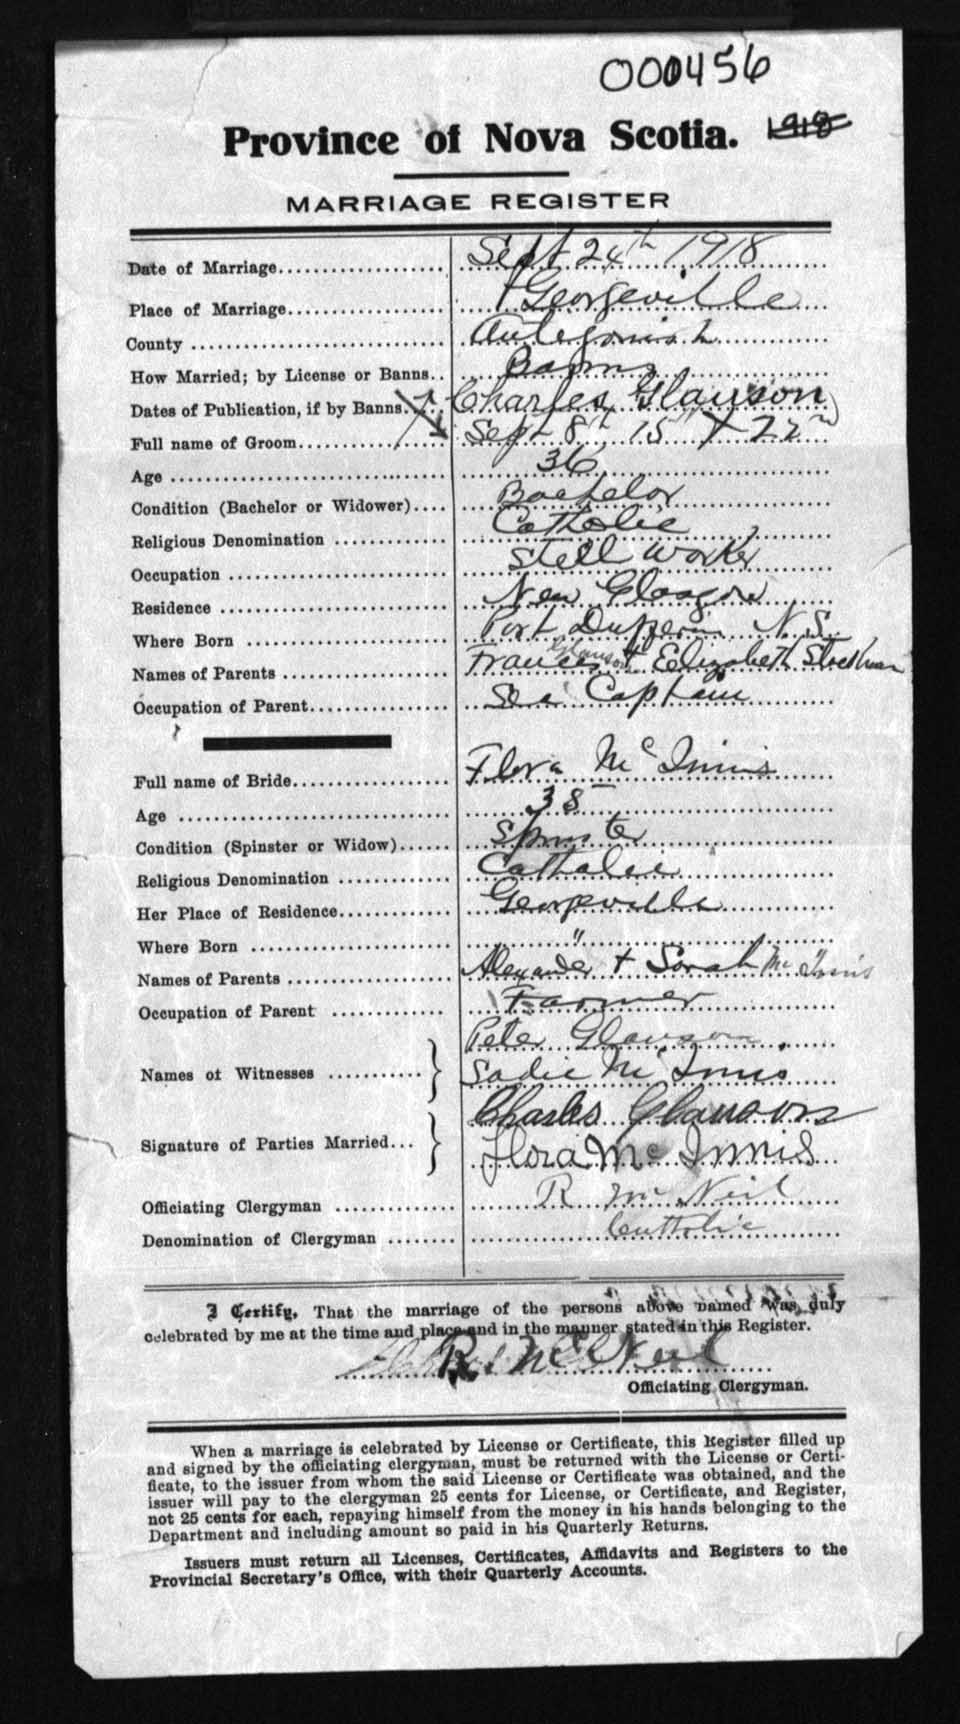 000456
Province of Nova Scotia. 1918
MARRIAGE REGISTER
Date of Marriage Sept 24th 1918
Place of Marriage Georgeville
County Antegonish
How Married; by License or Banns Banns
Dates of Publication, if by Banns Charles Glawson
Full name of Groom Sept 8th, 15 + 22nd
Age 36
Condition (Bachelor or Widower) Bachelor
Religious Denomination Catholic
Occupation Steel Worker
Residence New Glasgow
Where Born Port Dufferin N.S.
Names of Parents Frances Glawson + Elizabeth
Occupation of Parent Sea Captain
Full name of Bride Flora McInnis
Age 38
Condition (Spinster or Widow) Spinster
Religious Denomination Catholic
Her Place of Residence Georgeville
Where Born "
Names of Parents Alexander + Sarah McInnis
Occupation of Parent Farmer
Names of Witnesses Peter Glawson
Sadie McInnis
Signature of Parties Married Charles Glawson
Flora McInnis
Officiating Clergyman R McNeil
Denomination of Clergyman Catholic
I Certify, That the marriage of the persons above named was duly
celebrated by me at the time and place and in the manner stated in this Register.
R. McNeil
Officiating Clergyman.
When a marriage is celebrated by License or Certificate, this Register filled up
and signed by the officiating clergyman, must be returned with the License or Certi-
ficate, to the issuer from whom the said License or Certificate was obtained, and the
issuer will pay to the clergyman 25 cents for License, or Certificate, and Register,
not 25 cents for each, repaying himself from the money in his hands belonging to the
Department and including amount so paid in his Quarterly Returns.
Issuers must return all Licenses, Certificates, Affidavits and Registers to the
Provincial Secretary's Office, with their Quarterly Accounts.